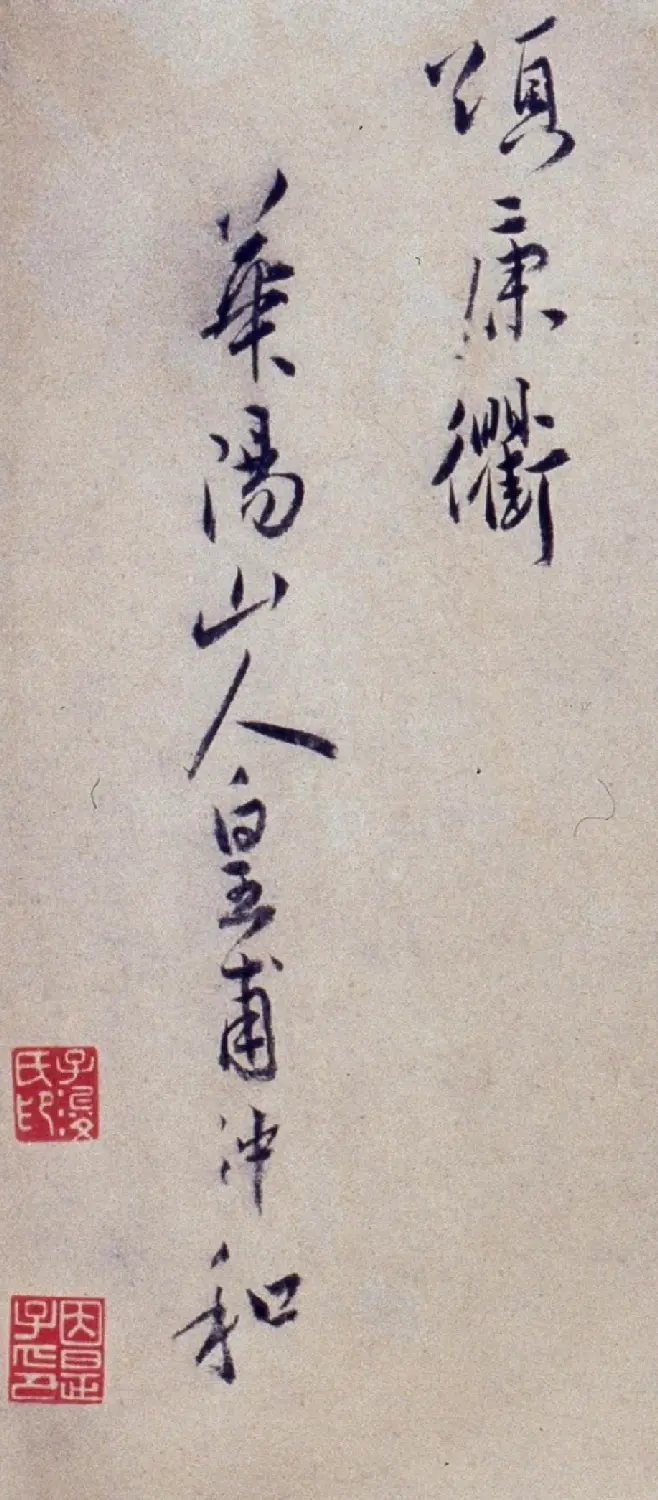 頌康衢
華陽山人皇甫沖和
子浚氏印